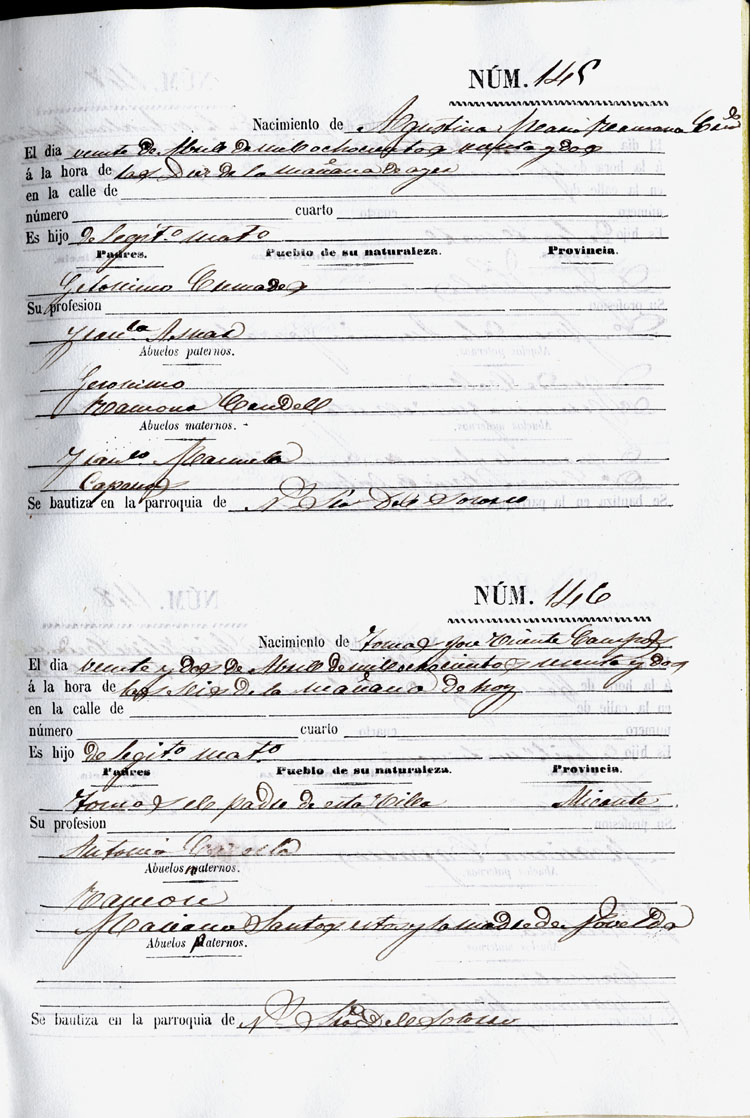 NÚM. 145
Nacimiento de Agustina Maria Ramona
El dia veinte de Abril de mil ochocientos y dos
á la hora de las Diez de la mañana de ayer
en la calle de
número cuarto
Es hijo de legit.º mat.º
Padres. Pueblo de su naturaleza. Provincia.
Geronimo Cremades
Su profesion
Fran.ca Asnar
Abuelos paternos.
Geronimo
Ramona Candell
Abuelos maternos.
Fran.co Manuela
Se bautiza en la parroquia de N.ª Sra Del Socorro
NÚM. 146
Nacimiento de Tomas José Vicente Campos
El dia veinte y dos de Abril de mil ochocientos y dos
á la hora de las seis de la mañana de hoy
en la calle de
número cuarto
Es hijo de legit.º mat.º
Padres Pueblo de su naturaleza. Provincia.
Tomas el padre de esta Villa Alicante
Su profesion
Antonia
Abuelos paternos.
Ramon
Mariana Santos estos y la madre de Novelda
Abuelos paternos.
Se bautiza en la parroquia de N.ª Sra Del Socorro